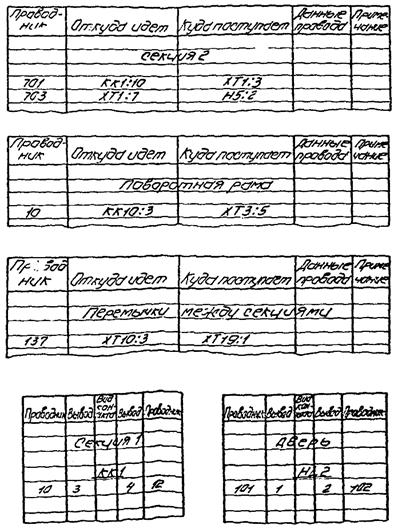 Провод- Откуда идет Куда поступает Данные Приме-
ник провода чание
Секция 2
701 КК1:10 ХТ1:3
703 ХТ1:7 Н5:2
Провод- Откуда идет Куда поступает Данные Приме-
ник провода чание
Поворотная рама
10 КК10:3 ХТ3:5
Откуда идет Куда поступает Данные Приме-
ник провода чание
Перемычки между секциями
137 ХТ10:3 ХТ19:1
Проводник Вывод Вид кон-такта Вывод Проводник
Секция 1
КК1
10 3 4 12
Проводник Вывод Вид кон-такта Вывод Проводник
Дверь
101 1 2 102